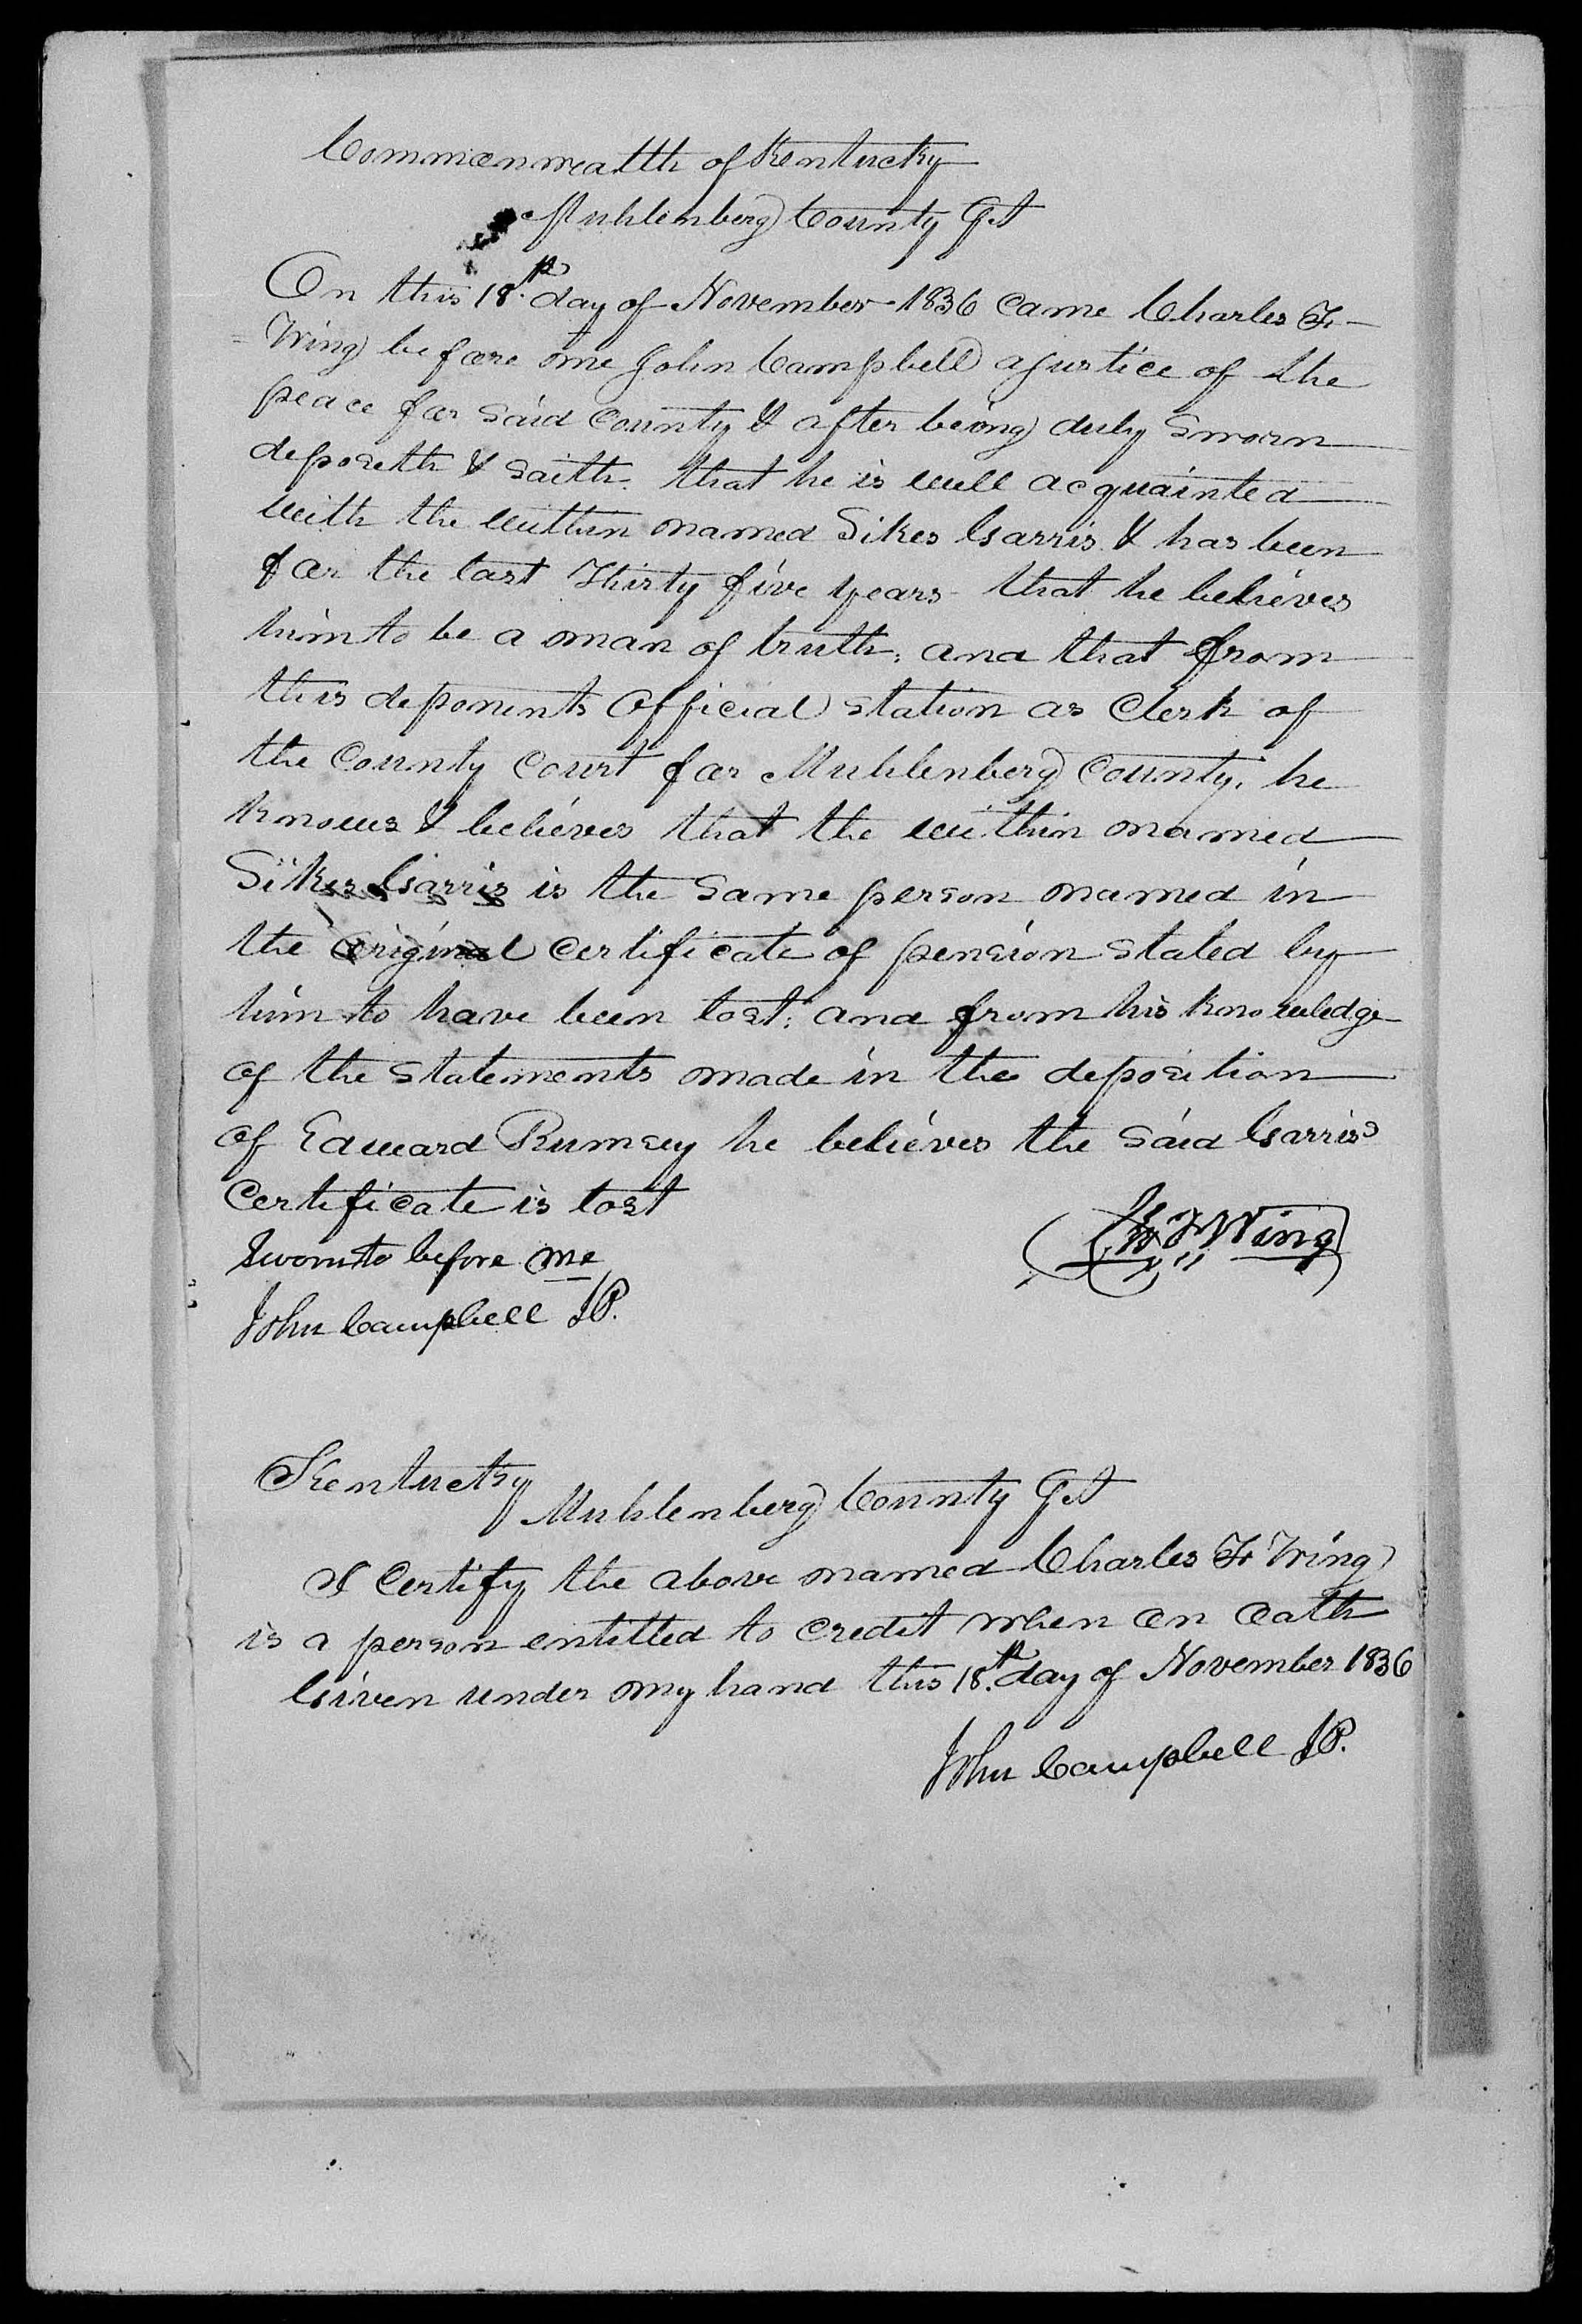 Commonwealth of Kentucky
Muhlenberg County Sct
On this 18th day of November 1836 came Charles F.
Wing before me John Campbell a justice of the
peace for said County & after being duly sworn
deposeth & saith. that he is well acquainted
with the within named Sikes Garris & has been
for the last Thirty five years that he believes
him to be a man of truth, and that from
this deponents official station as Clerk of
the County Court for Muhlenberg County, he
knows & believes that the within named
Sikes Garris is the same person named in
the original certificate of pension stated by
him to have been lost; and from his knowledge
of the statements made in the deposition
of Edward Rumsey he believes the said Garris
Certificate is lost
Sworn to before me
Ch. F. Wing
John Campbell J.P.
Kentucky
Muhlenberg County Sct
I Certify the above named Charles F Wing
is a person entitled to credit when on oath
Given under my hand this 18th day of November 1836
John Campbell J.P.